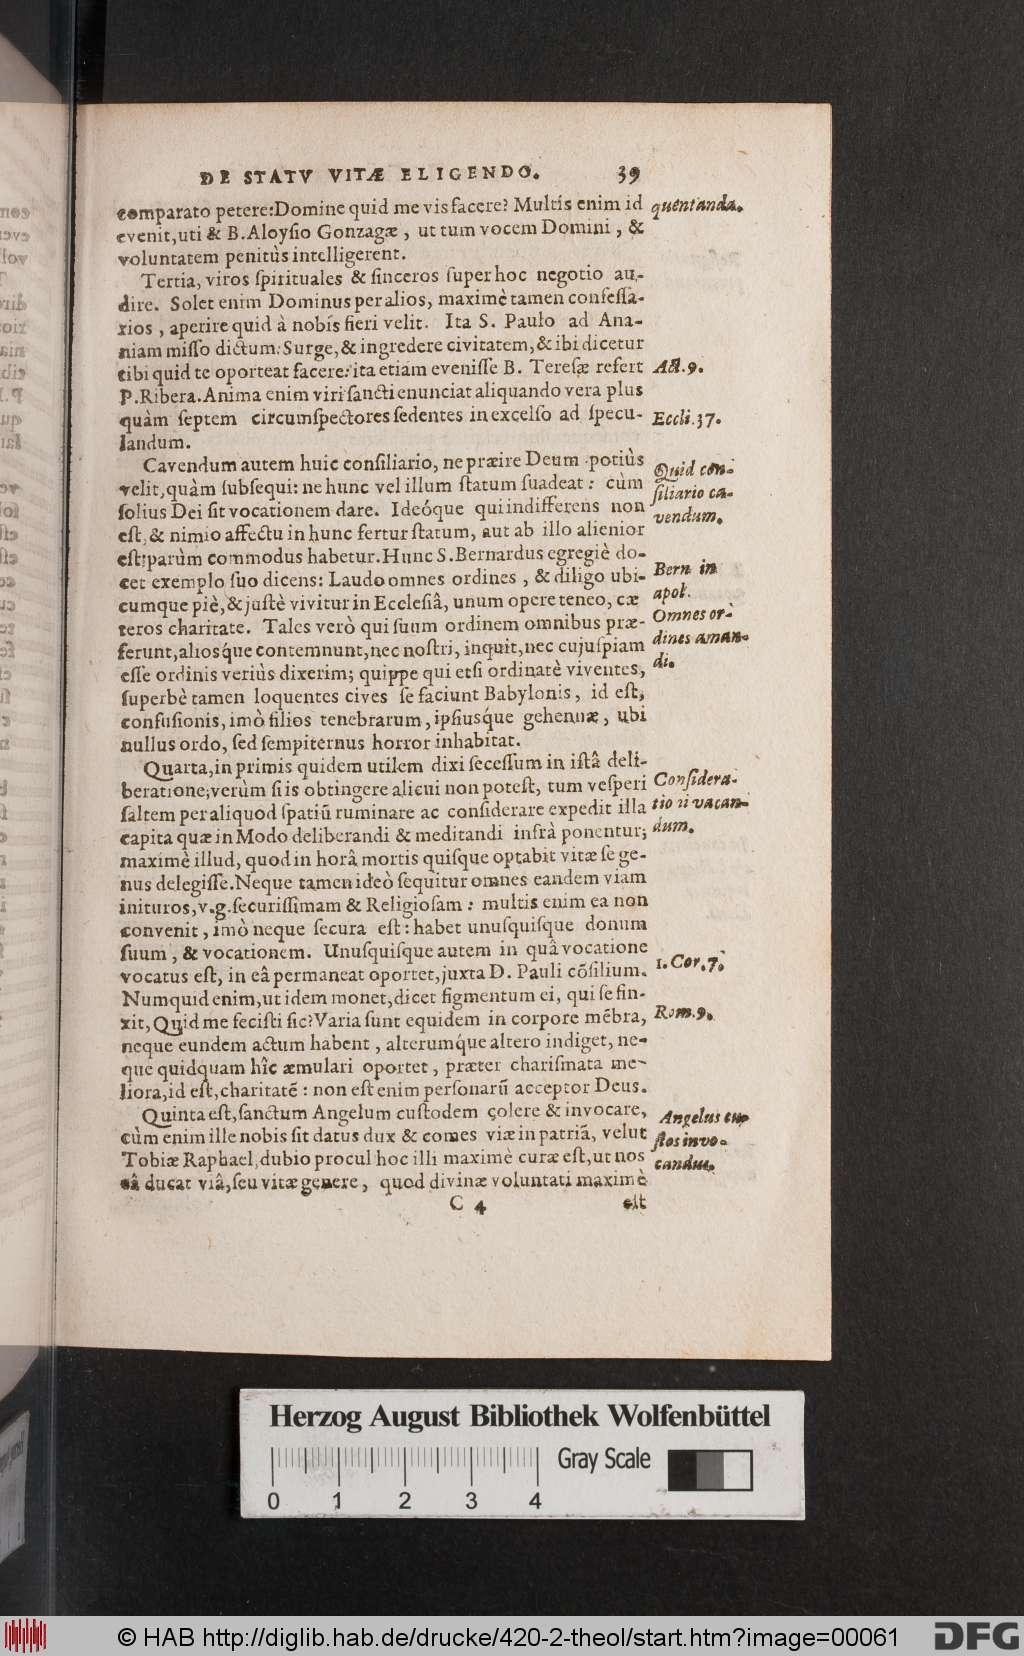 DE STATV VITÆ ELIGENDO. 39
comparato petere: Domine quid me vis facere? Multis enim id quentanda.
evenit, uti & B. Aloysio Gonzagæ, ut tum vocem Domini, &
voluntatem penitùs intelligerent.
Tertia, viros spirituales & sinceros super hoc negotio au-
dire. Solet enim Dominus per alios, maximè tamen confessa-
rios, aperire quid à nobis fieri velit. Ita S. Paulo ad Ana-
niam misso dictum: Surge, & ingredere civitatem, & ibi dicetur
tibi quid te oporteat facere: ita etiam evenisse B. Teresæ refert Act. 9.
P. Ribera. Anima enim viri sancti enunciat aliquando vera plus
quàm septem circumspectores sedentes in excelso ad specu- Eccli. 37.
landum.
Cavendum autem huic consiliario, ne præire Deum potiùs Quid con-
velit, quàm subsequi: ne hunc vel illum statum suadeat: cùm siliario ca-
solius Dei sit vocationem dare. Ideóque qui indifferens non vendum.
est, & nimio affectu in hunc fertur statum, aut ab illo alienior
est: parùm commodus habetur. Hunc S. Bernardus egregiè do-
cet exemplo suo dicens: Laudo omnes ordines, & diligo ubi- Bern in
cumque piè, & justè vivitur in Ecclesiâ, unum opere teneo, cæ apol.
teros charitate. Tales verò qui suum ordinem omnibus præ- Omnes or-
ferunt, aliosque contemnunt, nec nostri, inquit, nec cujuspiam dines aman-
esse ordinis veriùs dixerim; quippe qui etsi ordinatè viventes, di.
superbè tamen loquentes cives se faciunt Babylonis, id est,
confusionis, imò filios tenebrarum, ipsiusque gehennæ, ubi
nullus ordo, sed sempiternus horror inhabitat.
Quarta, in primis quidem utilem dixi secessum in istâ deli-
beratione; verùm si is obtingere alicui non potest, tum vesperi Considera-
saltem per aliquod spatiũ ruminare ac considerare expedit illa tio ii vacan-
capita quæ in Modo deliberandi & meditandi infrà ponentur; dum.
maximè illud, quod in horâ mortis quisque optabit vitæ se ge-
nus delegisse. Neque tamen ideò sequitur omnes eandem viam
inituros, v.g. securissimam & Religiosam: multis enim ea non
convenit, imò neque secura est: habet unusquisque donum
suum, & vocationem. Unusquisque autem in quâ vocatione
vocatus est, in eâ permaneat oportet, juxta D. Pauli cõsilium. 1. Cor. 7.
Numquid enim, ut idem monet, dicet figmentum ei, qui se fin-
xit, Quid me fecisti sic? Varia sunt equidem in corpore mẽbra, Rom. 9.
neque eundem actum habent, alterumque altero indiget, ne-
que quidquam hîc æmulari oportet, præter charismata me-
liora, id est, charitatẽ: non est enim personarũ acceptor Deus.
Quinta est, sanctum Angelum custodem colere & invocare, Angelus cu-
cùm enim ille nobis sit datus dux & comes viæ in patriã, velut stos invo-
Tobiæ Raphael, dubio procul hoc illi maximè curæ est, ut nos candus.
eâ ducat viâ, seu vitæ genere, quod divinæ voluntati maximè
C 4 est
Herzog August Bibliothek Wolfenbüttel
Gray Scale
0 1 2 3 4
© HAB http://diglib.hab.de/drucke/420-2-theol/start.htm?image=00061
DFG